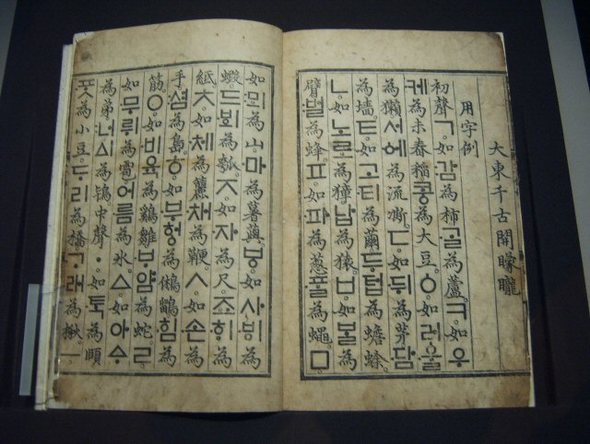 大東千古開矇矓
用字例
初聲ㄱ。如감爲柿。ᄀᆞᆯ爲蘆。ㅋ。如우
케爲未舂稻。콩爲大豆。ㆁ。如러울
爲獺。서ᅌᅦ爲流凘。ㄷ。如뒤爲茅。담
爲墻。ㅌ。如고티爲繭。두텁爲蟾蜍。
ㄴ。如노로爲獐。납爲猿。ㅂ。如ᄇᆞᆯ爲
臂。벌爲蜂。ㅍ。如파爲葱。ᄑᆞᆯ爲蠅。ㅁ。
如뫼爲山。마爲薯藇。ㅸ。如사ᄫᅵ爲
蝦。드ᄫᅴ爲瓠。ㅈ。如자爲尺。죠ᄒᆡ爲
紙。ㅊ。如체爲籭。채爲鞭。ㅅ。如손爲
手。셤爲島。ㅎ。如부헝爲鵂鶹。힘爲
筋。ㅇ。如비육爲鷄雛。ᄇᆞ얌爲蛇。ㄹ。
如무뤼爲雹。어름爲氷。ㅿ。如아ᅀᆞ
爲弟。너ᅀᅵ爲鴇。中聲ㆍ。如ᄐᆞᆨ爲頤。
ᄑᆞᆺ爲小豆。ᄃᆞ리爲橋。ᄀᆞ래爲楸。ㅡ。